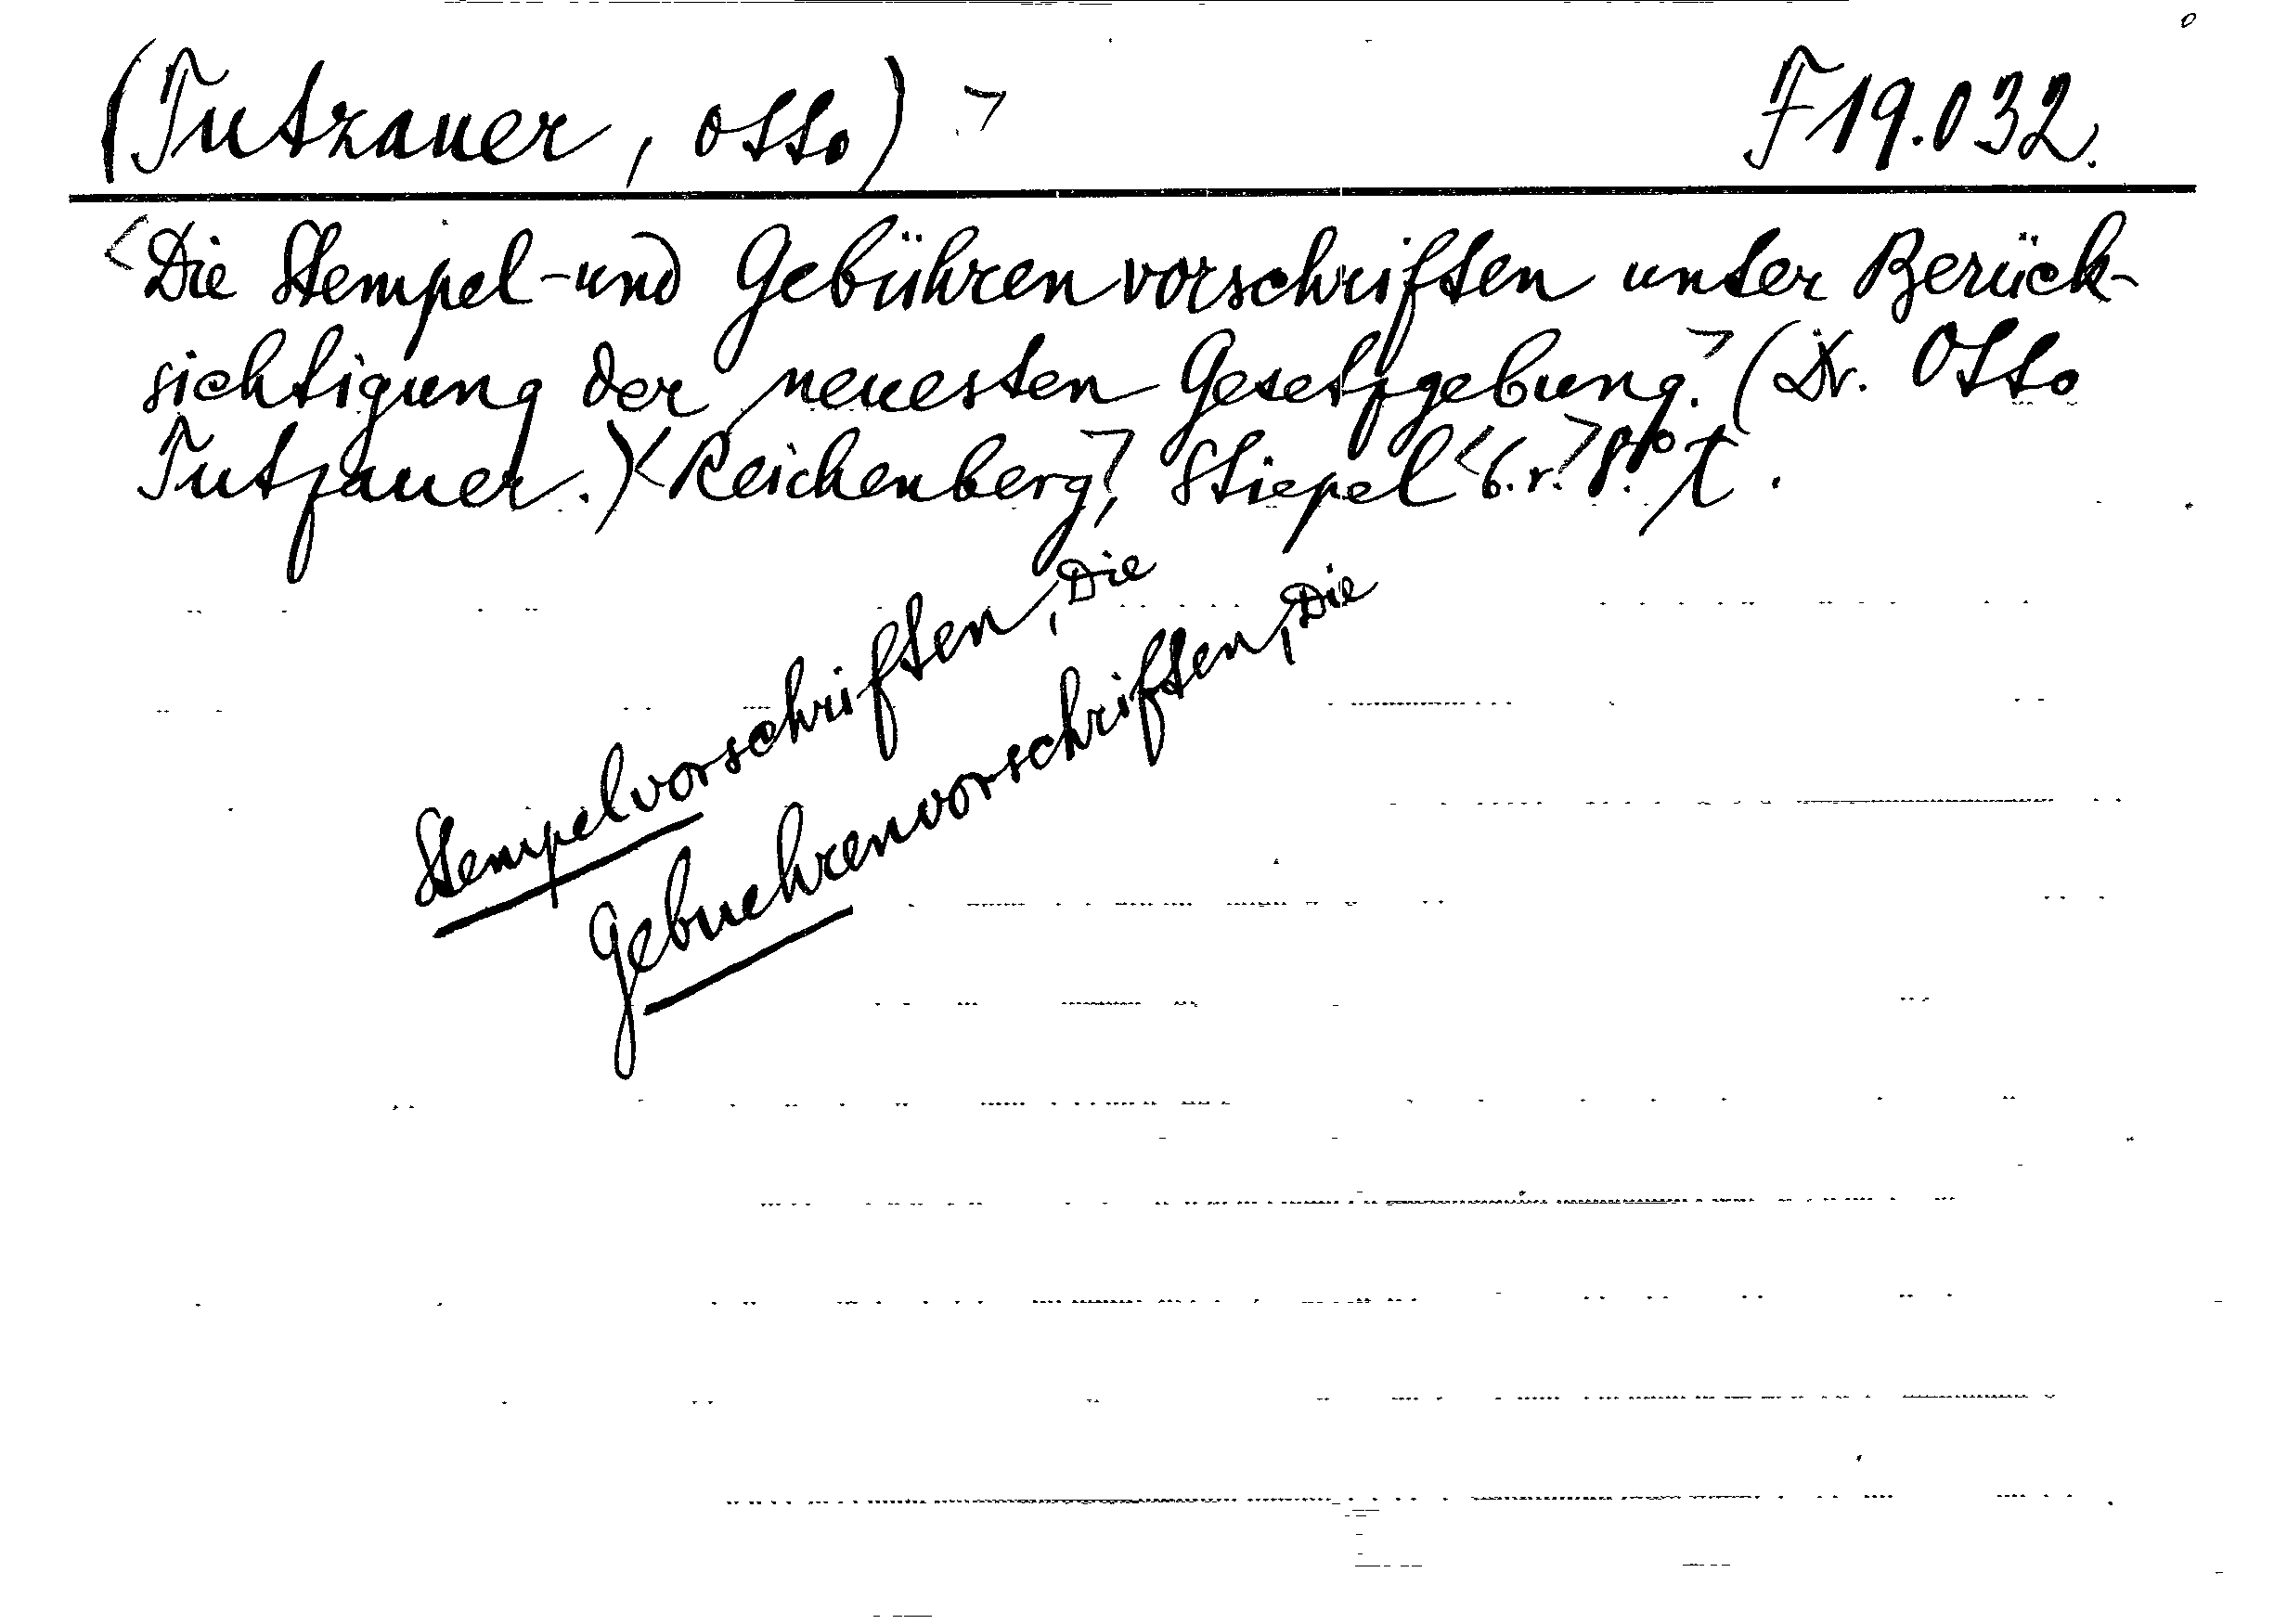 (Tutzauer, Otto) >
F 19.032.
<Die Stempel- und Gebührenvorschriften unter Berück-
sichtigung der neuesten Gesetzgebung.> (Dr. Otto
Tutzauer.) <Reichenberg>, Stiepel <b.r.> 8°
Stempelvorschriften, Die
Gebuehrenvorschriften, Die